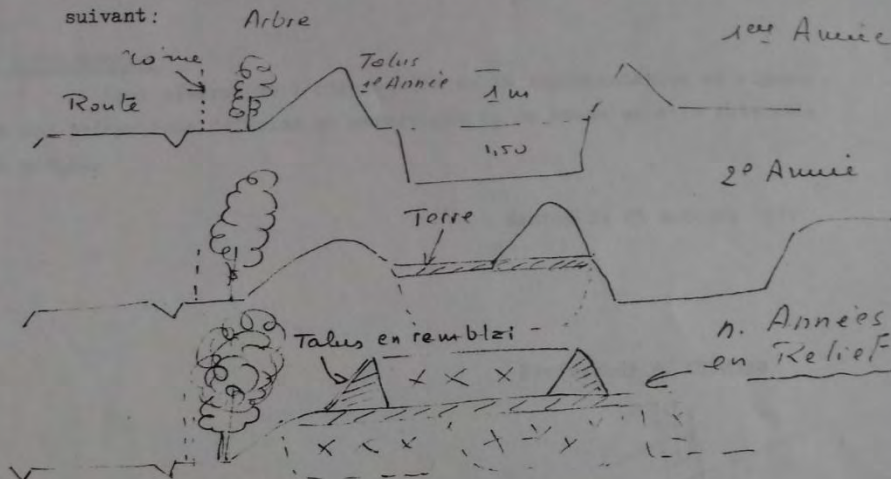 suivant: Arbre
1ère Année
Talus
1e Année
1 m
Route
1,50
2e Année
Terre
Talus en remblai -
n. Années
en Relief